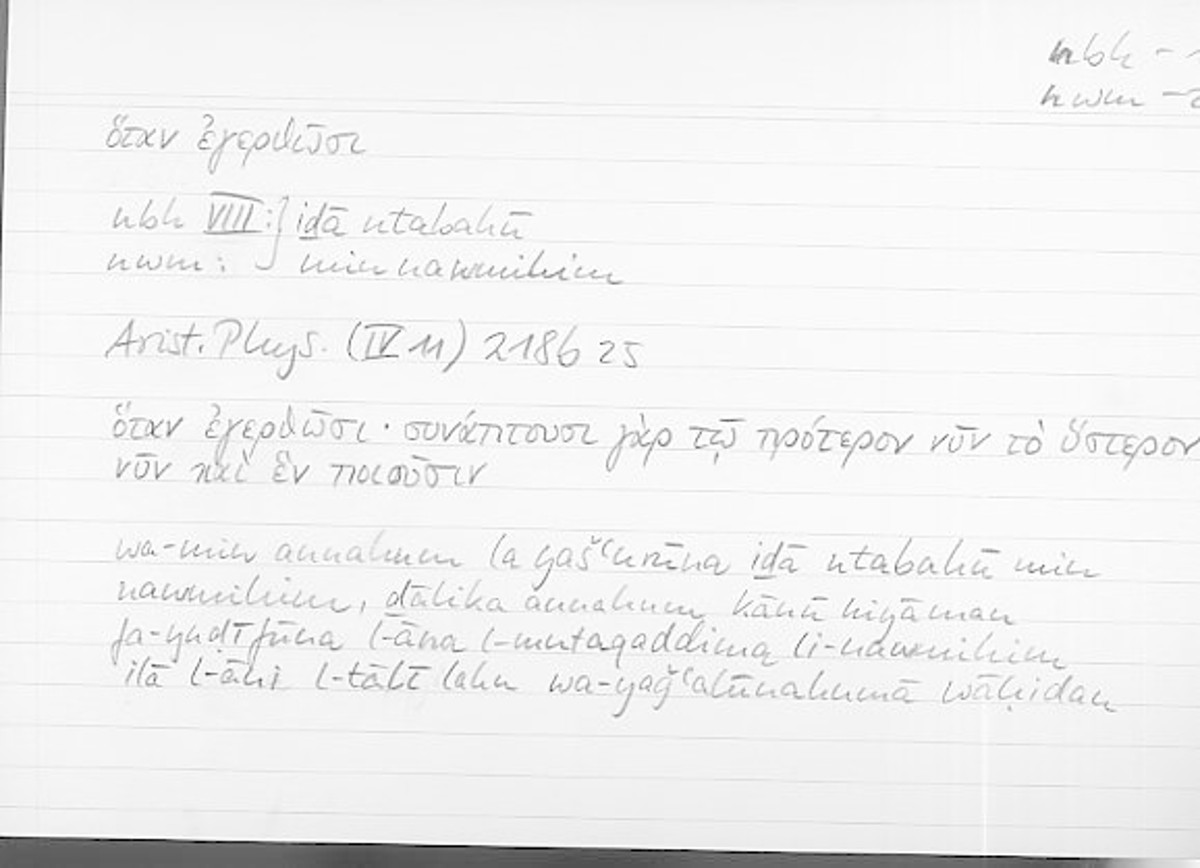 nbh -
nwm -
ὅταν ἐγερθῶσι
nbh VIII: } iḏā ntabahū
nwm: min nawmihim
Arist. Phys. (IV 11) 218b 25
ὅταν ἐγερθῶσι · συνάπτουσι γὰρ τῷ πρότερον νῦν τὸ ὕστερον
νῦν καὶ ἓν ποιοῦσιν
wa-min annahum la yašʿurūna iḏā ntabahū min
nawmihim, ḏālika annahum kānū niyāman
fa-yuḍīfūna l-āna l-mutaqaddima li-nawmihim
ilā l-āni l-tālī lahu wa-yaǧʿalūnahumā wāḥidan